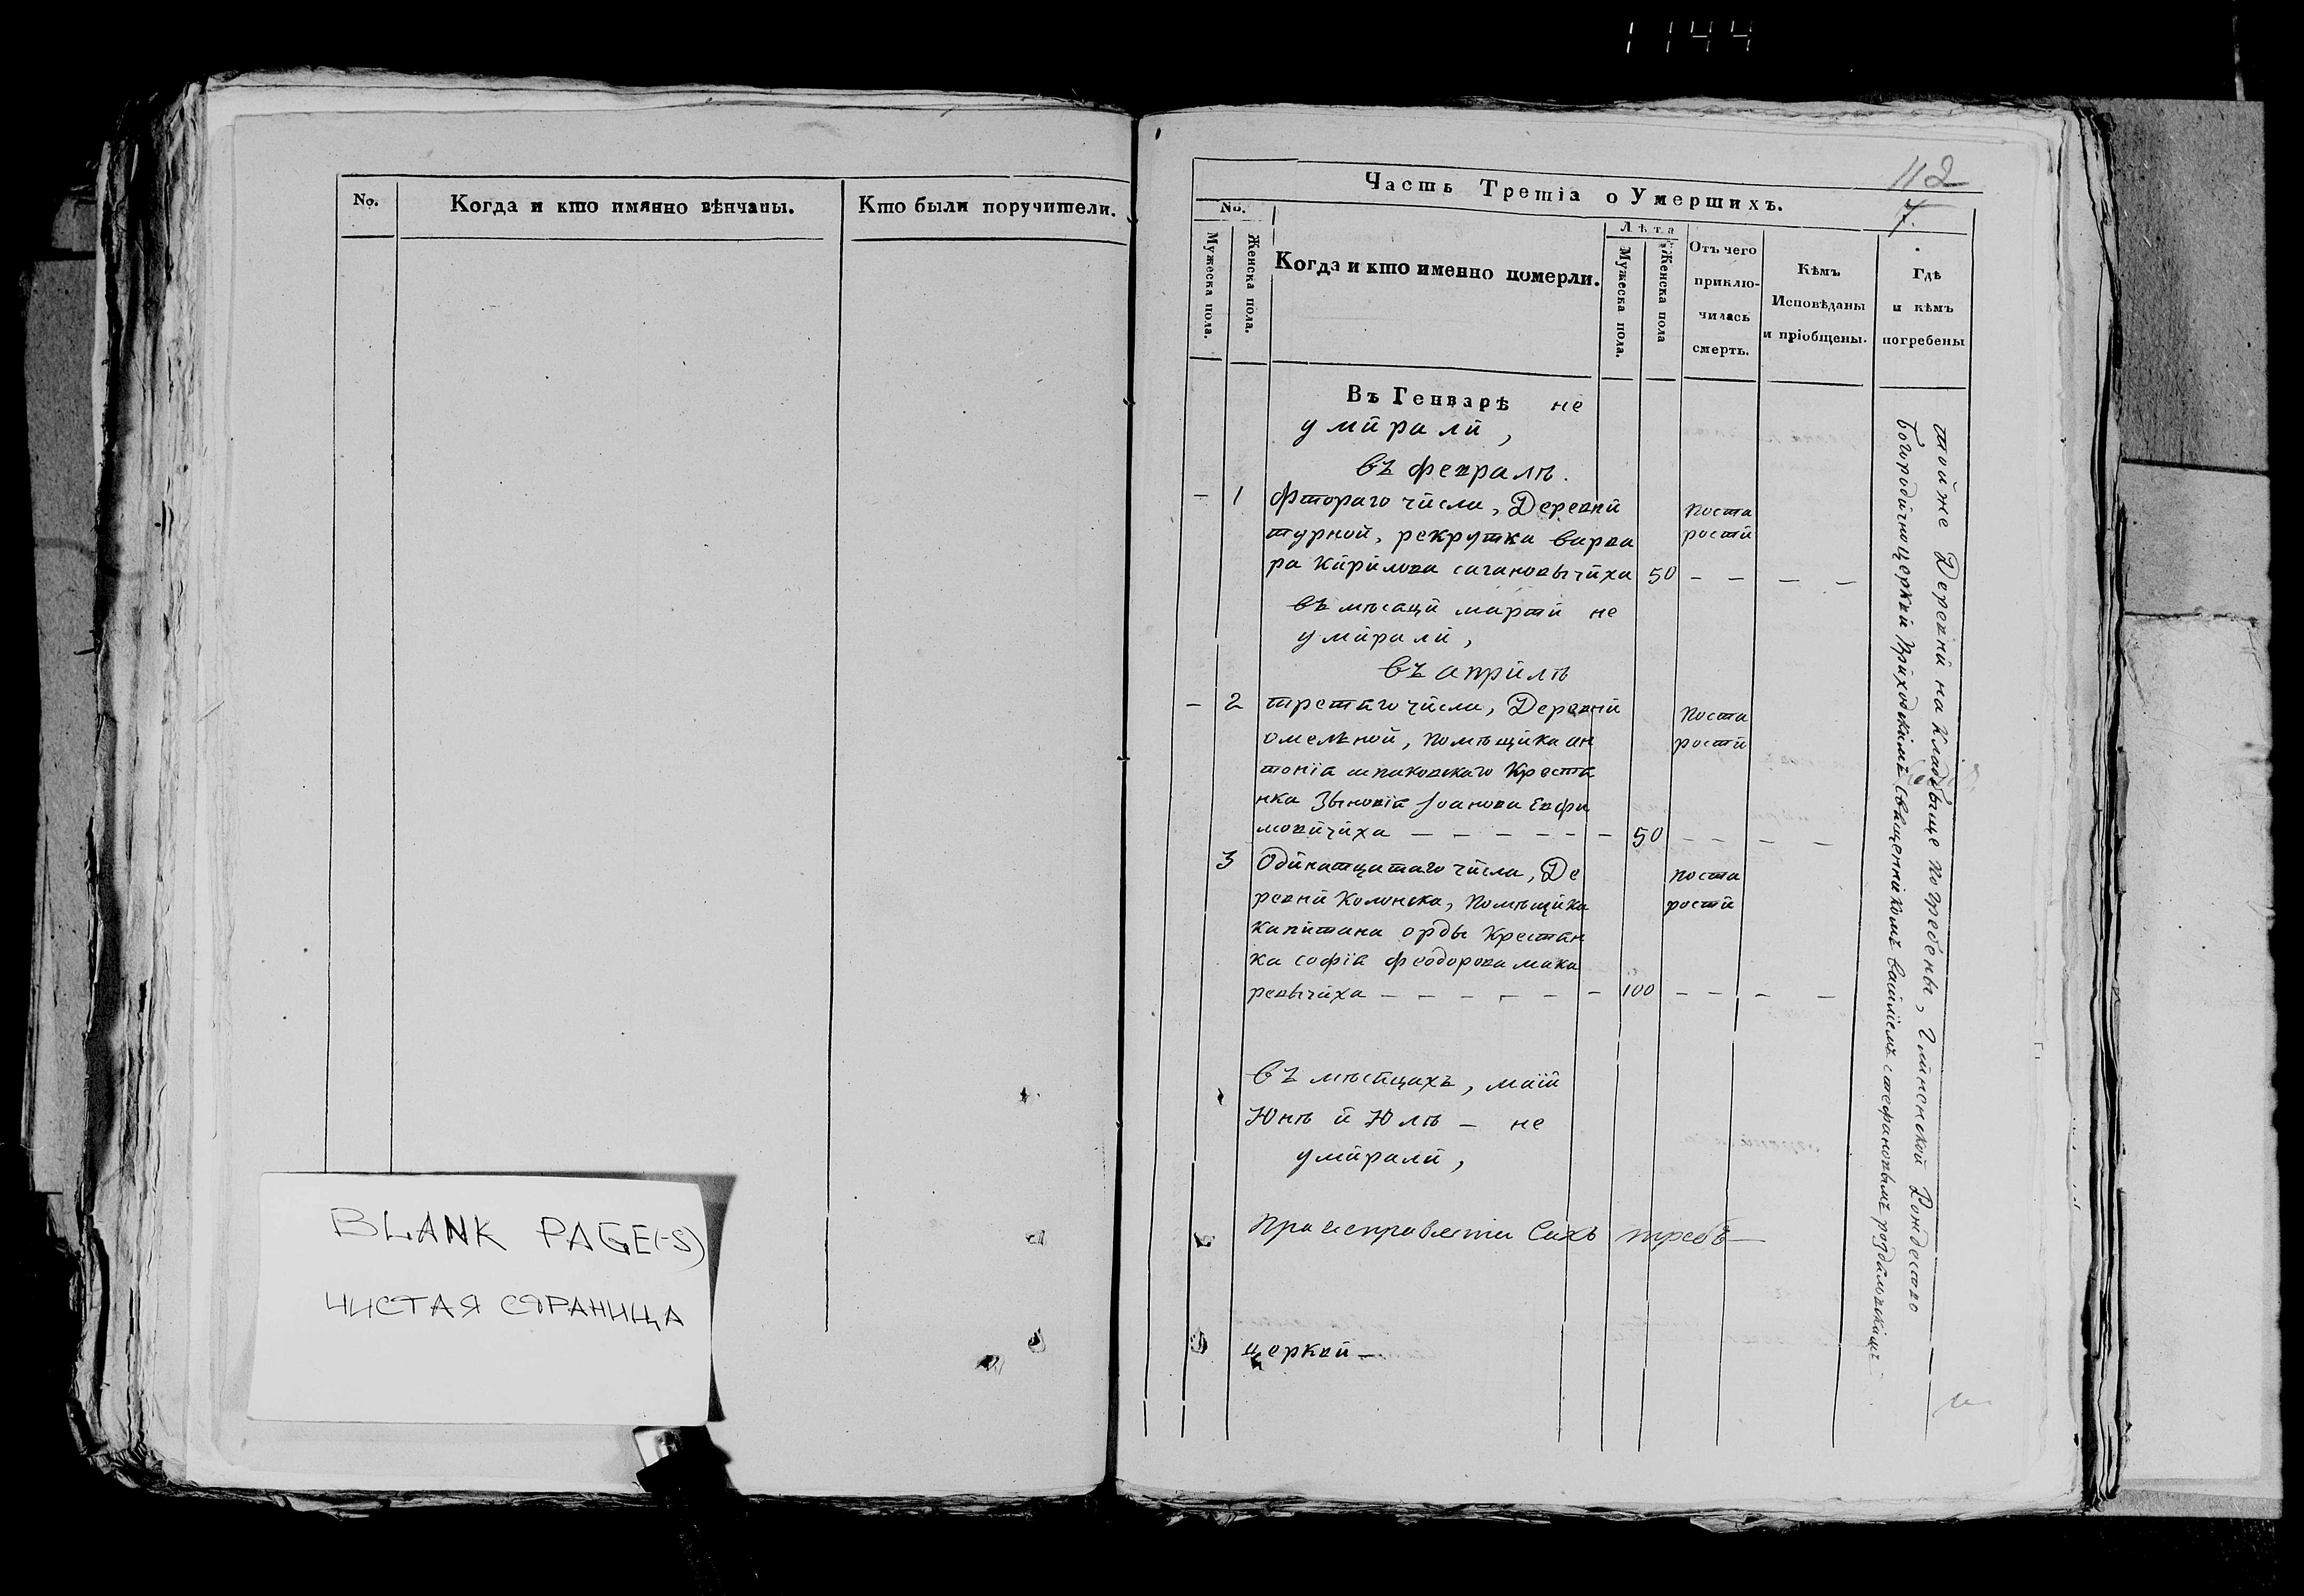 1144
No.
Когда и кто имянно вѣнчаны.
Кто были поручители.
BLANK PAGE(-S)
ЧИСТАЯ СТРАНИЦА
112
Часть Третіа о Умершихъ.
7.
No.
Мужеска пола.
Женска пола.
Когда и кто именно померли.
Лѣта
Мужеска пола.
Женска пола
Отъ чего
приклю-
чилась
смерть.
Кѣмъ
Исповѣданы
и пріобщены.
Гдѣ
и кѣмъ
погребены
Въ Генварѣ не
умирали,
въ февралѣ.
– 1 фтораго числа, Деревни
турной, рекрутка варва
ра Кирилова сагановычиха 50 – – – –
поста
рости
въ мѣсяци марти не
умирали,
въ априлѣ
– 2 третяго числа, Деревни
омелной, помѣщика ан
тонія шпаковскаго Крестя
нка Зыновія Іоанова Евфи
мовичиха – – – – – – 50 – – – –
поста
рости
3 Одинатцатаго числа, Де
ревни Колонска, помѣщика
капитана орды Крестян
ка софія феодорова мака
ревычиха – – – – – – 100 – – – –
поста
рости
въ мѣсяцахъ, маїи
Юнѣ и Юлѣ – не
умирали,
При исправленіи Сихъ требъ –
церкви –
тойже Деревни на Кладбыще погребены, Рождество
Богородичноцеркви Приходскимъ священникомъ василіемъ стефановымъ